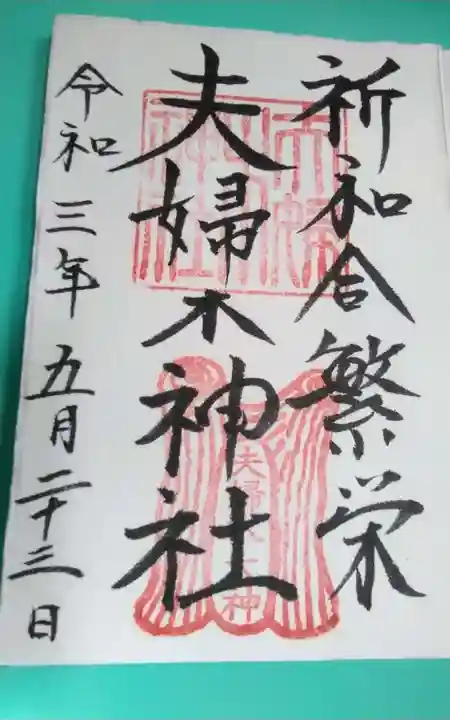 祈和合繁栄
夫婦木神社
令和三年五月二十三日
夫婦木大神